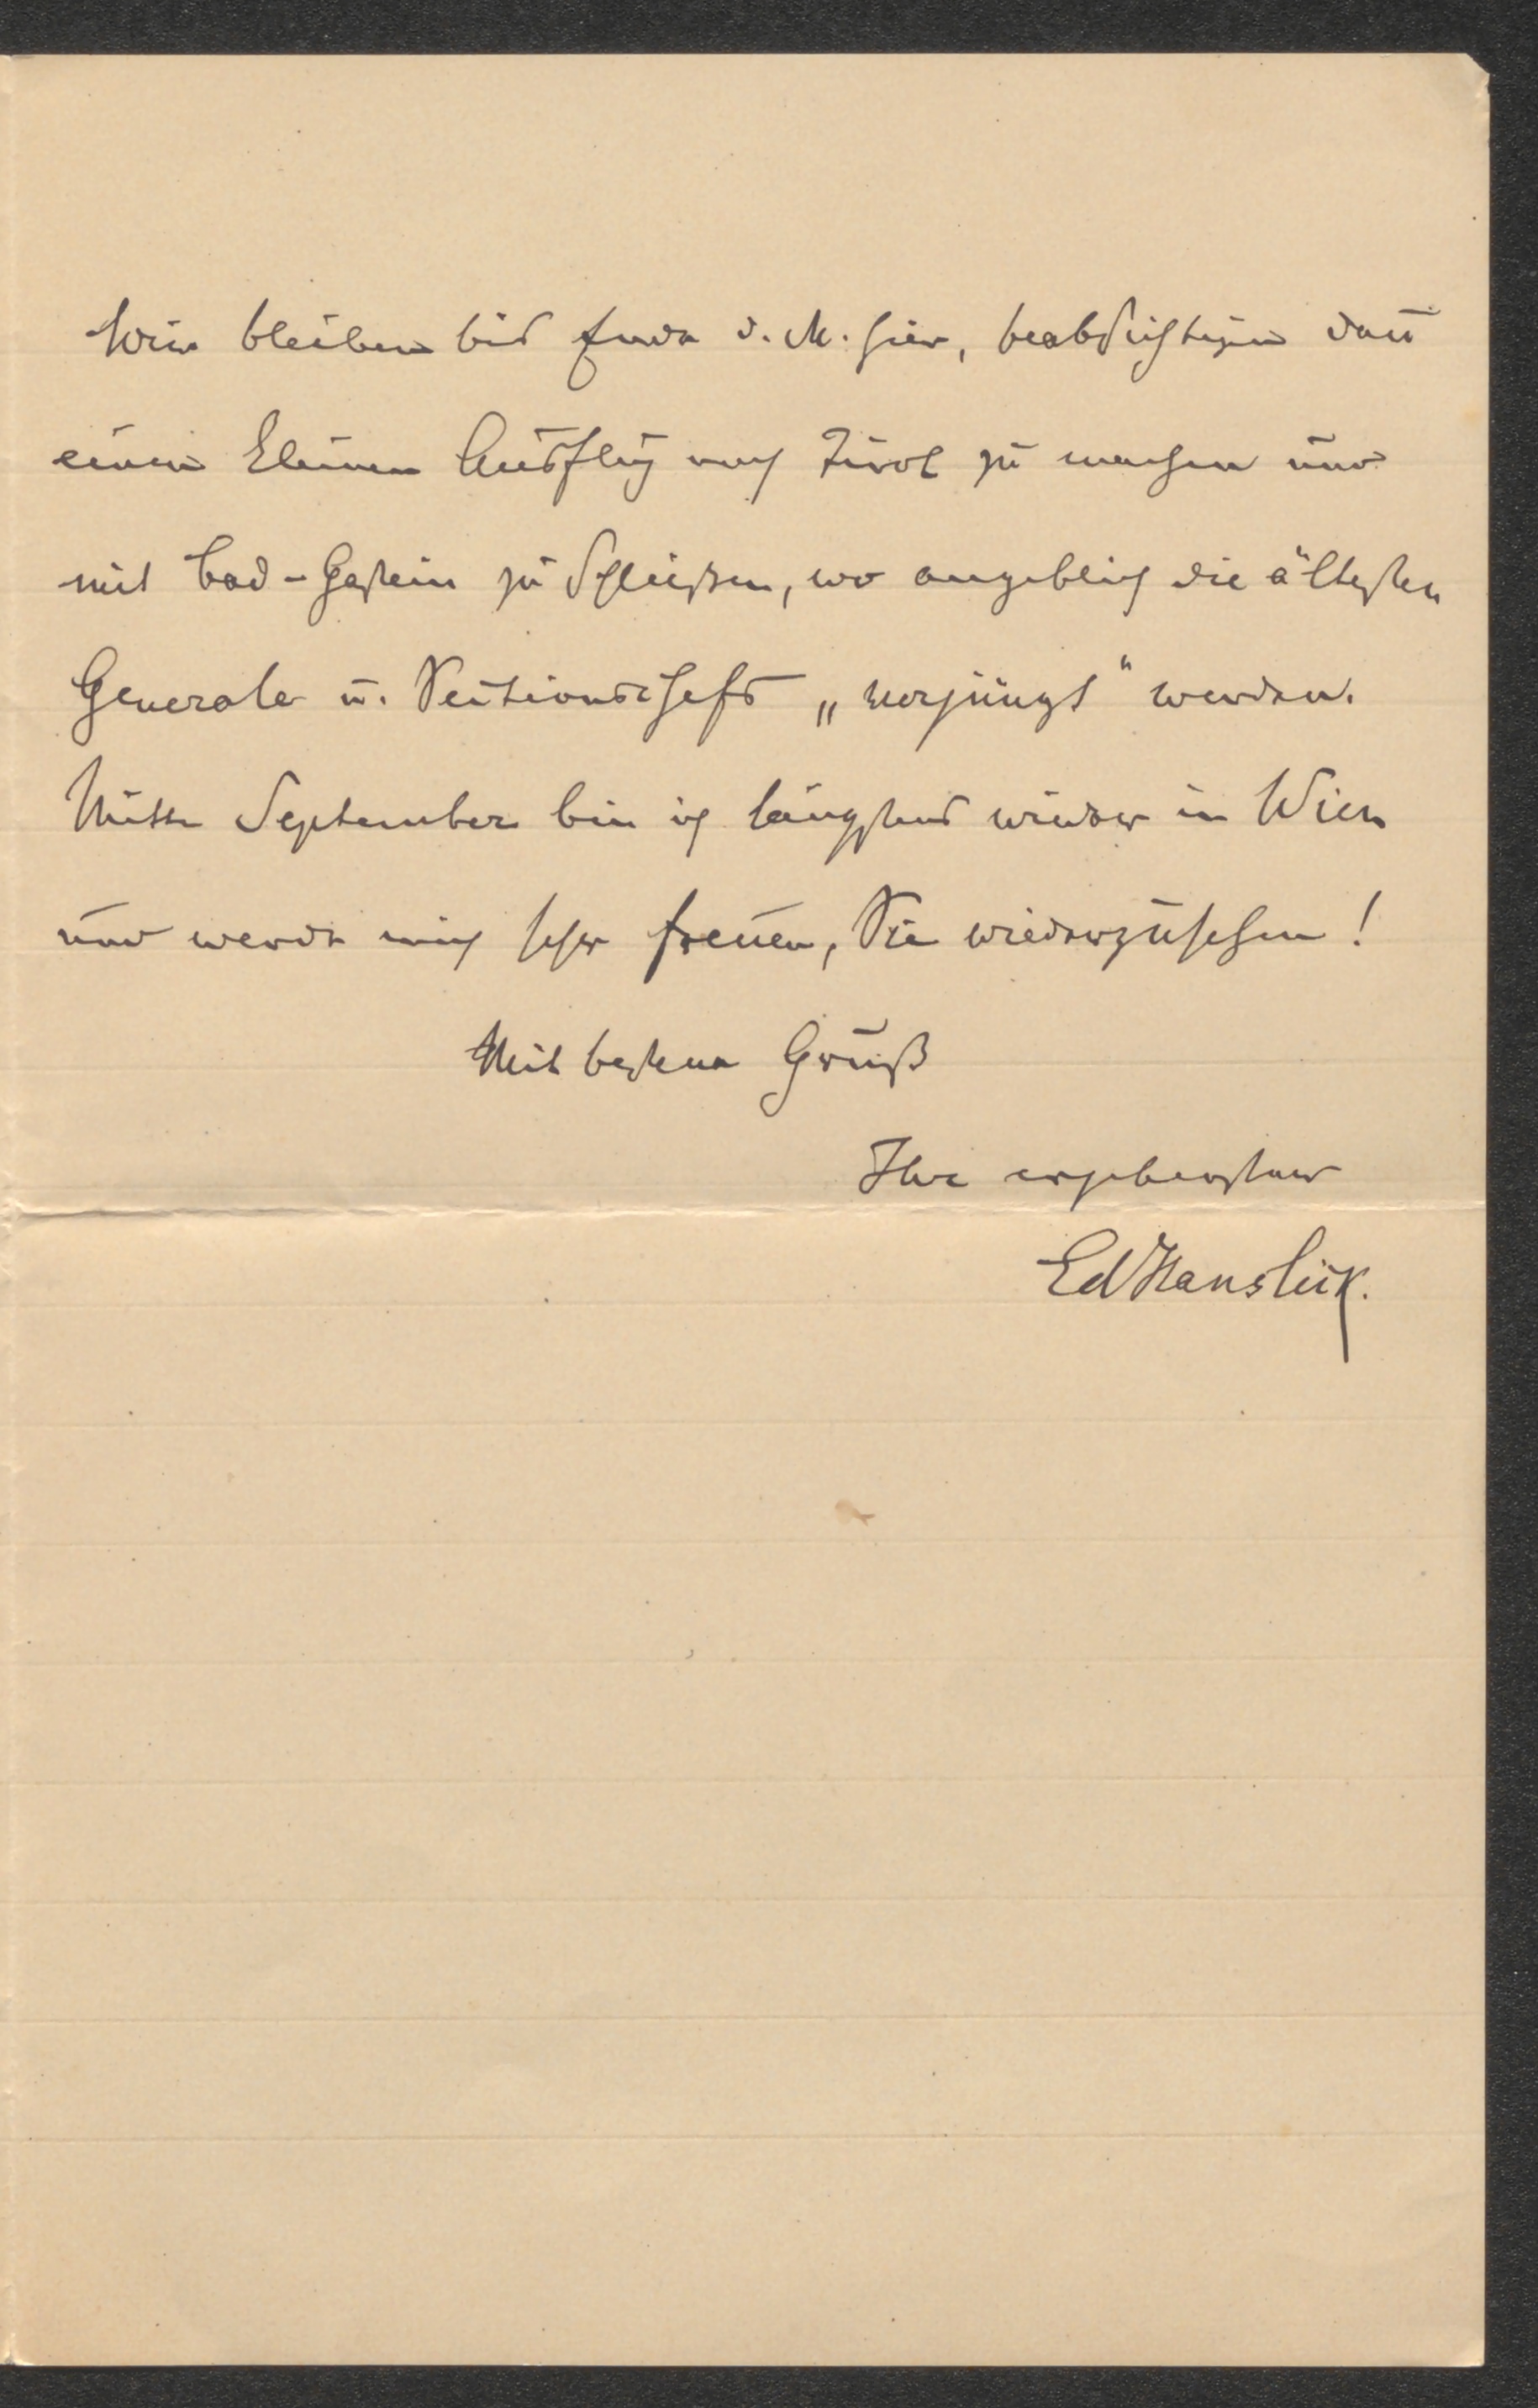 Wir bleiben bis Ende d. M. hier, beabsichtigen dan̄
einen kleinen Ausflug nach Tirol zu machen und
mit Bad-Gastein zu schließen, wo angeblich die ältesten
Generale u. Sectionschefs „verjüngt" werden.
Mitte September bin ich längstens wieder in Wien
und werde mich sehr freuen, Sie wiederzusehen!
Mit bestem Gruß
Ihr ergebenster
EdHanslick.